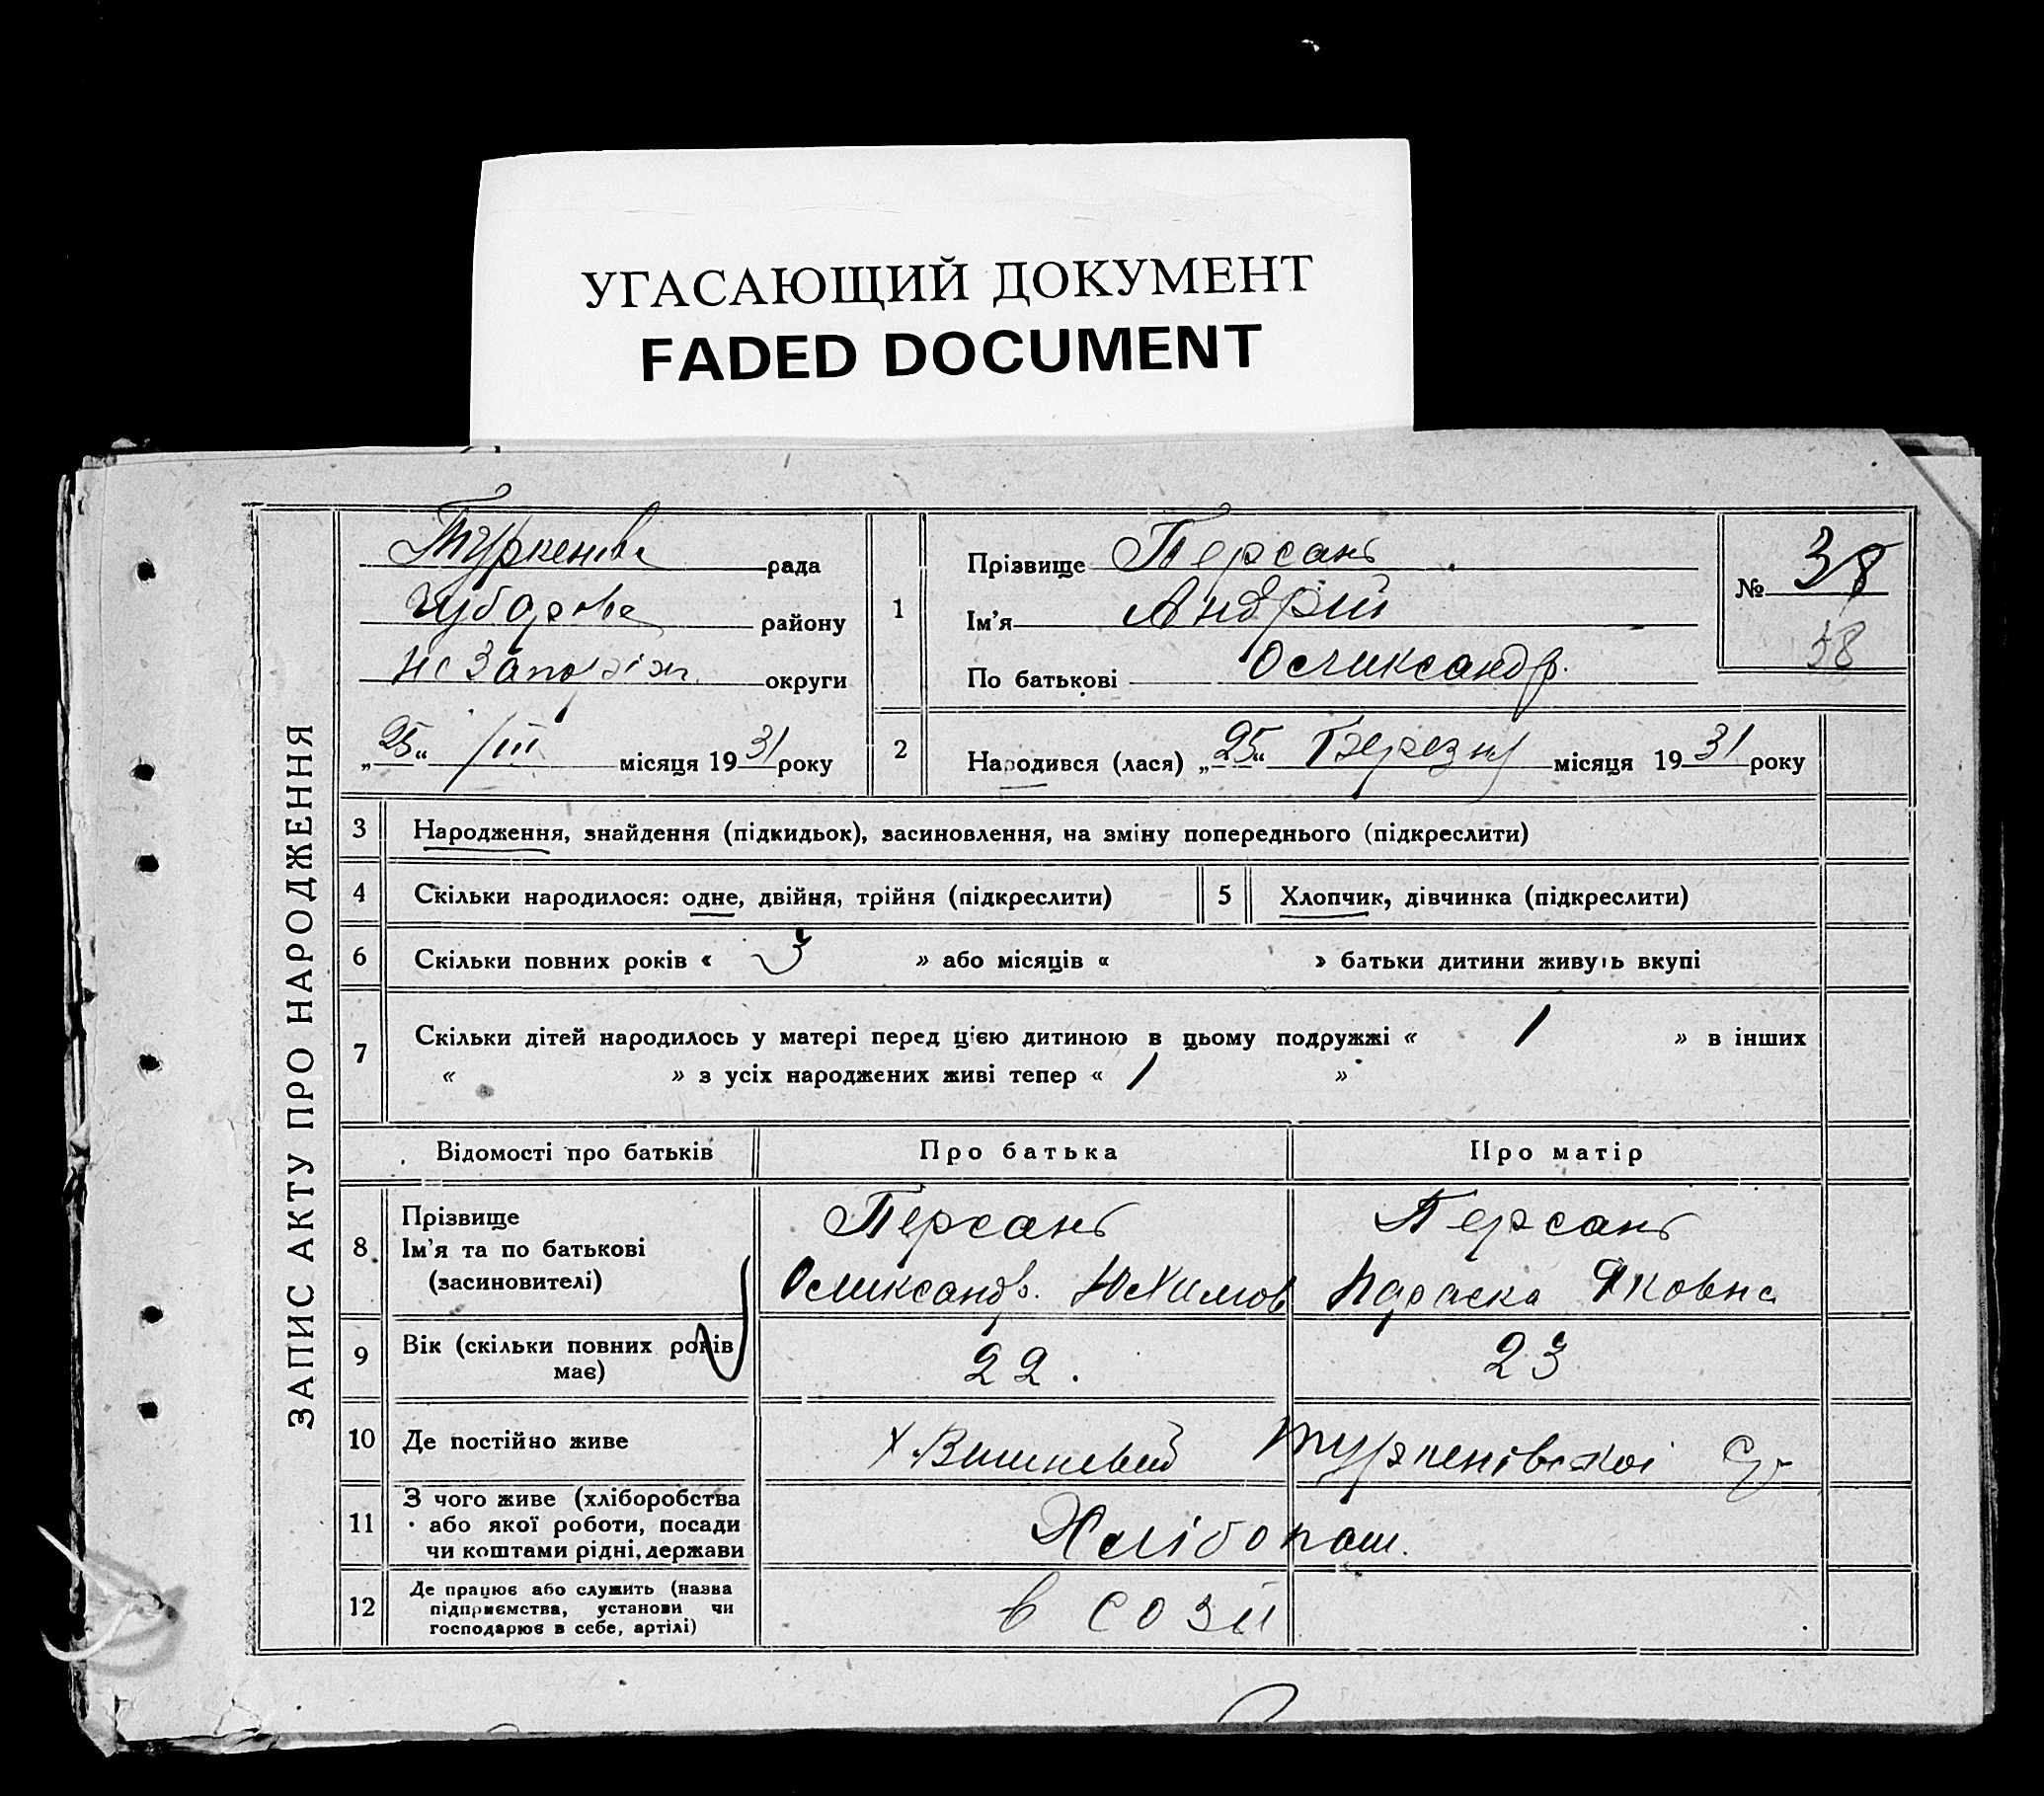 УГАСАЮЩИЙ ДОКУМЕНТ
FADED DOCUMENT
ЗАПИС АКТУ ПРО НАРОДЖЕННЯ
Туркенівс рада
Чубарове району
Запоріж округи
„25“ /III місяця 1931 року
1
Прізвище Персань
Ім'я Андрій
По батькові Олександр.
№ 38
38
2 Народився (лася) „25“ Березня місяця 1931 року
3 Народження, знайдення (підкидьок), засиновлення, на зміну попереднього (підкреслити)
4 Скільки народилося: одне, двійня, трійня (підкреслити) 5 Хлопчик, дівчинка (підкреслити)
6 Скільки повних років « 3 » або місяців « » батьки дитини живуть вкупі
7 Скільки дітей народилось у матері перед цією дитиною в цьому подружжі « 1 » в інших
« » з усіх народжених живі тепер « 1 »
Відомості про батьків Про батька Про матір
8 Прізвище Персань Персань
Ім'я та по батькові
(засиновителі) Олександр. Юхимов Параска Яковна
9 Вік (скільки повних років має) 22. 23
10 Де постійно живе х Вишневий Туркенівскої
11 З чого живе (хліборобства
або якої роботи, посади Хлібопаш.
чи коштами рідні, держави
12 Де працює або служить (назва
підприємства, установи чи в созі
господарює в себе, артілі)